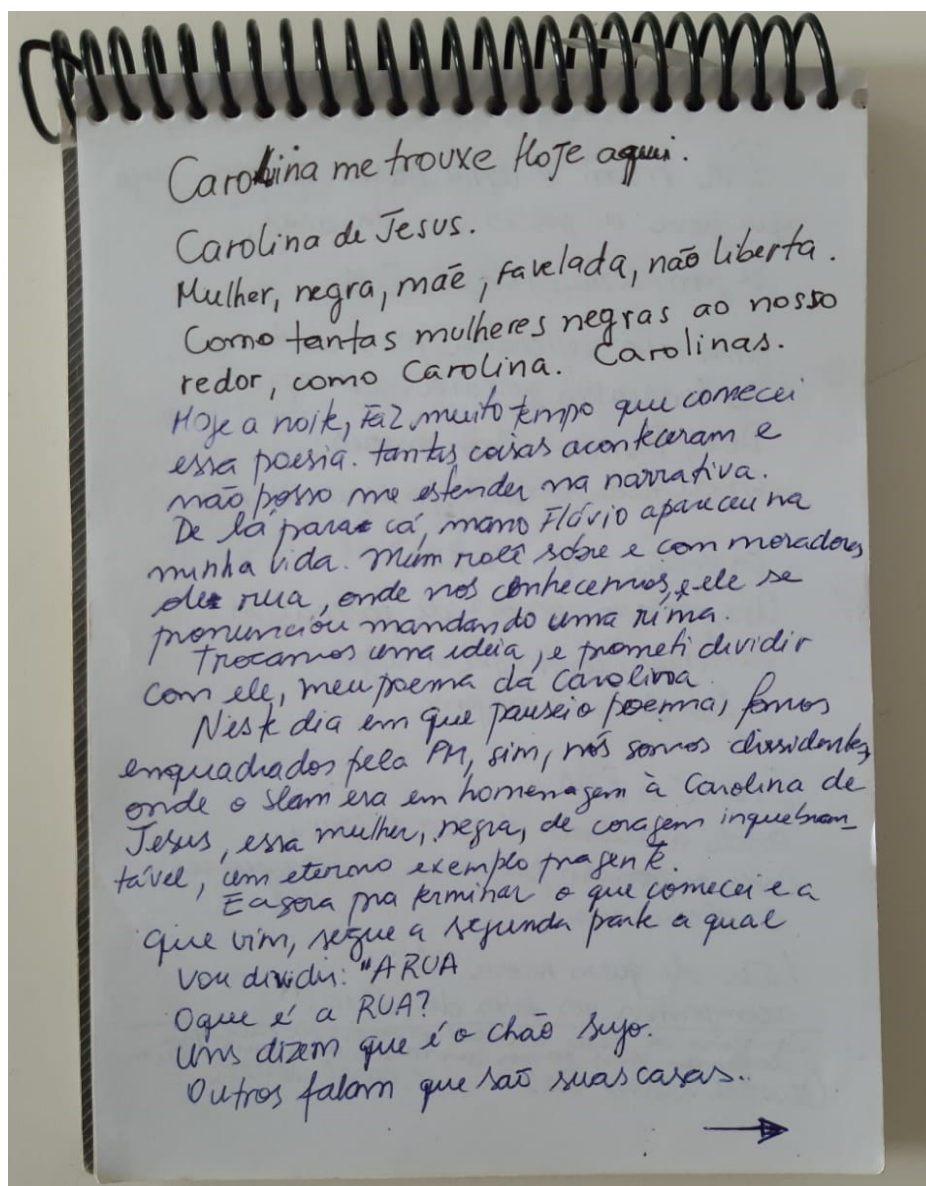 Carolina me trouxe Hoje aqui.
Carolina de Jesus.
Mulher, negra, mãe, favelada, não liberta.
Como tantas mulheres negras ao nosso
redor, como Carolina. Carolinas.
Hoje a noite, Faz muito tempo que comecei
essa poesia. tantas coisas aconteceram e
não posso me estender na narrativa.
De lá para cá, mano Flávio apareceu na
minha vida. Num rolê sobre e com moradores
de rua, onde nos conhecemos, e ele se
pronunciou mandando uma rima.
Trocamos uma ideia, e prometi dividir
com ele, meu poema da Carolina.
Neste dia em que pausei o poema, fomos
enquadrados pela PM, sim, nós somos dissidentes,
onde o slam era em homenagem à Carolina de
Jesus, essa mulher, negra, de coragem inquebran_
tável, um eterno exemplo pra gente.
E agora pra terminar o que comecei e a
que vim, segue a segunda parte a qual
vou dividir: "A RUA
O que é a RUA?
Uns dizem que é o chão sujo.
Outros falam que são suas casas..